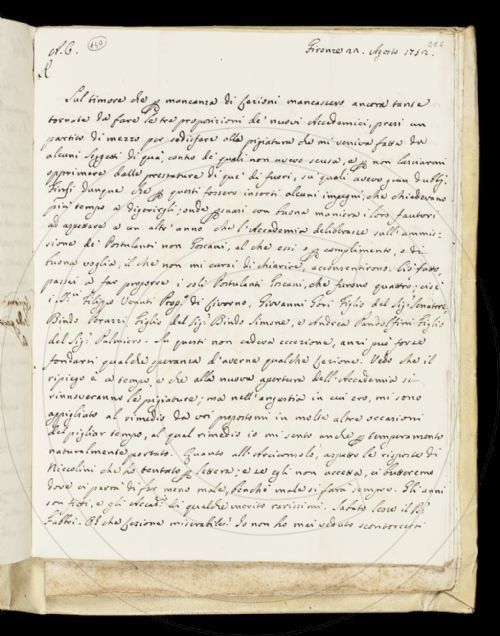 A. C. 150 Firenze 22. Agosto 1752. 286
Sul timore che p mancanza di Lezioni mancassero ancora tante
tornate da fare le tre proposizioni de' nuovi Accademici, presi un
partito di mezzo per sodisfare alla premura che mi veniva fatta da
alcuni soggetti di quà, contro de' quali non avevo scusa, e p non lasciarmi
opprimere dalle pressature di que' di fuori, su' quali avevo gran dubbj.
Finsi dunque che p questi fossero insorti alcuni impegni, che chiedevano
più tempo a digerirgli; onde con buona maniera i loro fautori
ad aspettare a un altr'anno che l'Accademia deliberasse sull'ammis-
sione de' Postulanti non Toscani, al che essi o p complimento, o di
buona voglia, il che non mi curai di chiarire, acconsentirono. Ciò fatto,
passai a far proporre i soli Postulanti Toscani, che furono quattro; cioè
i Filippo Venuti di Livorno, Giovanni Figlio del Sig. Senatore,
Bindo Peruzzi Figlio del Sig. Bindo Simone, e Andrea Pandolfini Figlio
del Sig. Palmiero. In questi non cadeva eccezione, anzi può forse
fondarsi qualche speranza d'averne qualche Lezione. Vedo che il
ripiego è a tempo, e che alla nuova apertura dell'Accademia si
rinnoveranno le; ma nell'angustia in cui ero, mi sono
appigliato al rimedio da voi propostomi in molte altre occasioni
del pigliar tempo, al qual rimedio io mi sento anche p temperamento
naturalmente portato. Quanto all'Arciconsolo, aspetto le risposte di
Niccolini che ho tentato p lettera; e se egli non accetta, ci butteremo
dove ci parrà di far meno male, benchè male si farà sempre. Gli anni
son tristi, e gli Accad. di qualche merito rarissimi. Sabato lesse il
Fabbri. Oh che Lezione miserabile! Io non ho mai veduto